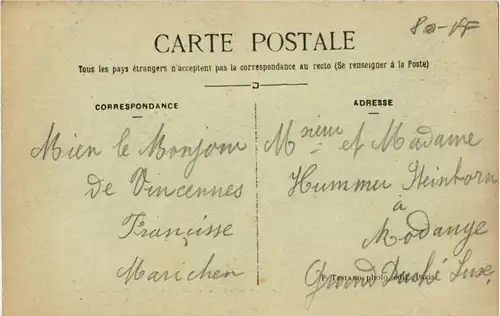 80-FF
CARTE POSTALE
Tous les pays étrangers n'acceptent pas la correspondance au recto (Se renseigner à la Poste)
CORRESPONDANCE
Mien le Monjour
de Vincennes
Francisse
Marichen
ADRESSE
Msieur et Madame
Hummer Steinborn
à
Rodange
Grand Duché Luxe
photo